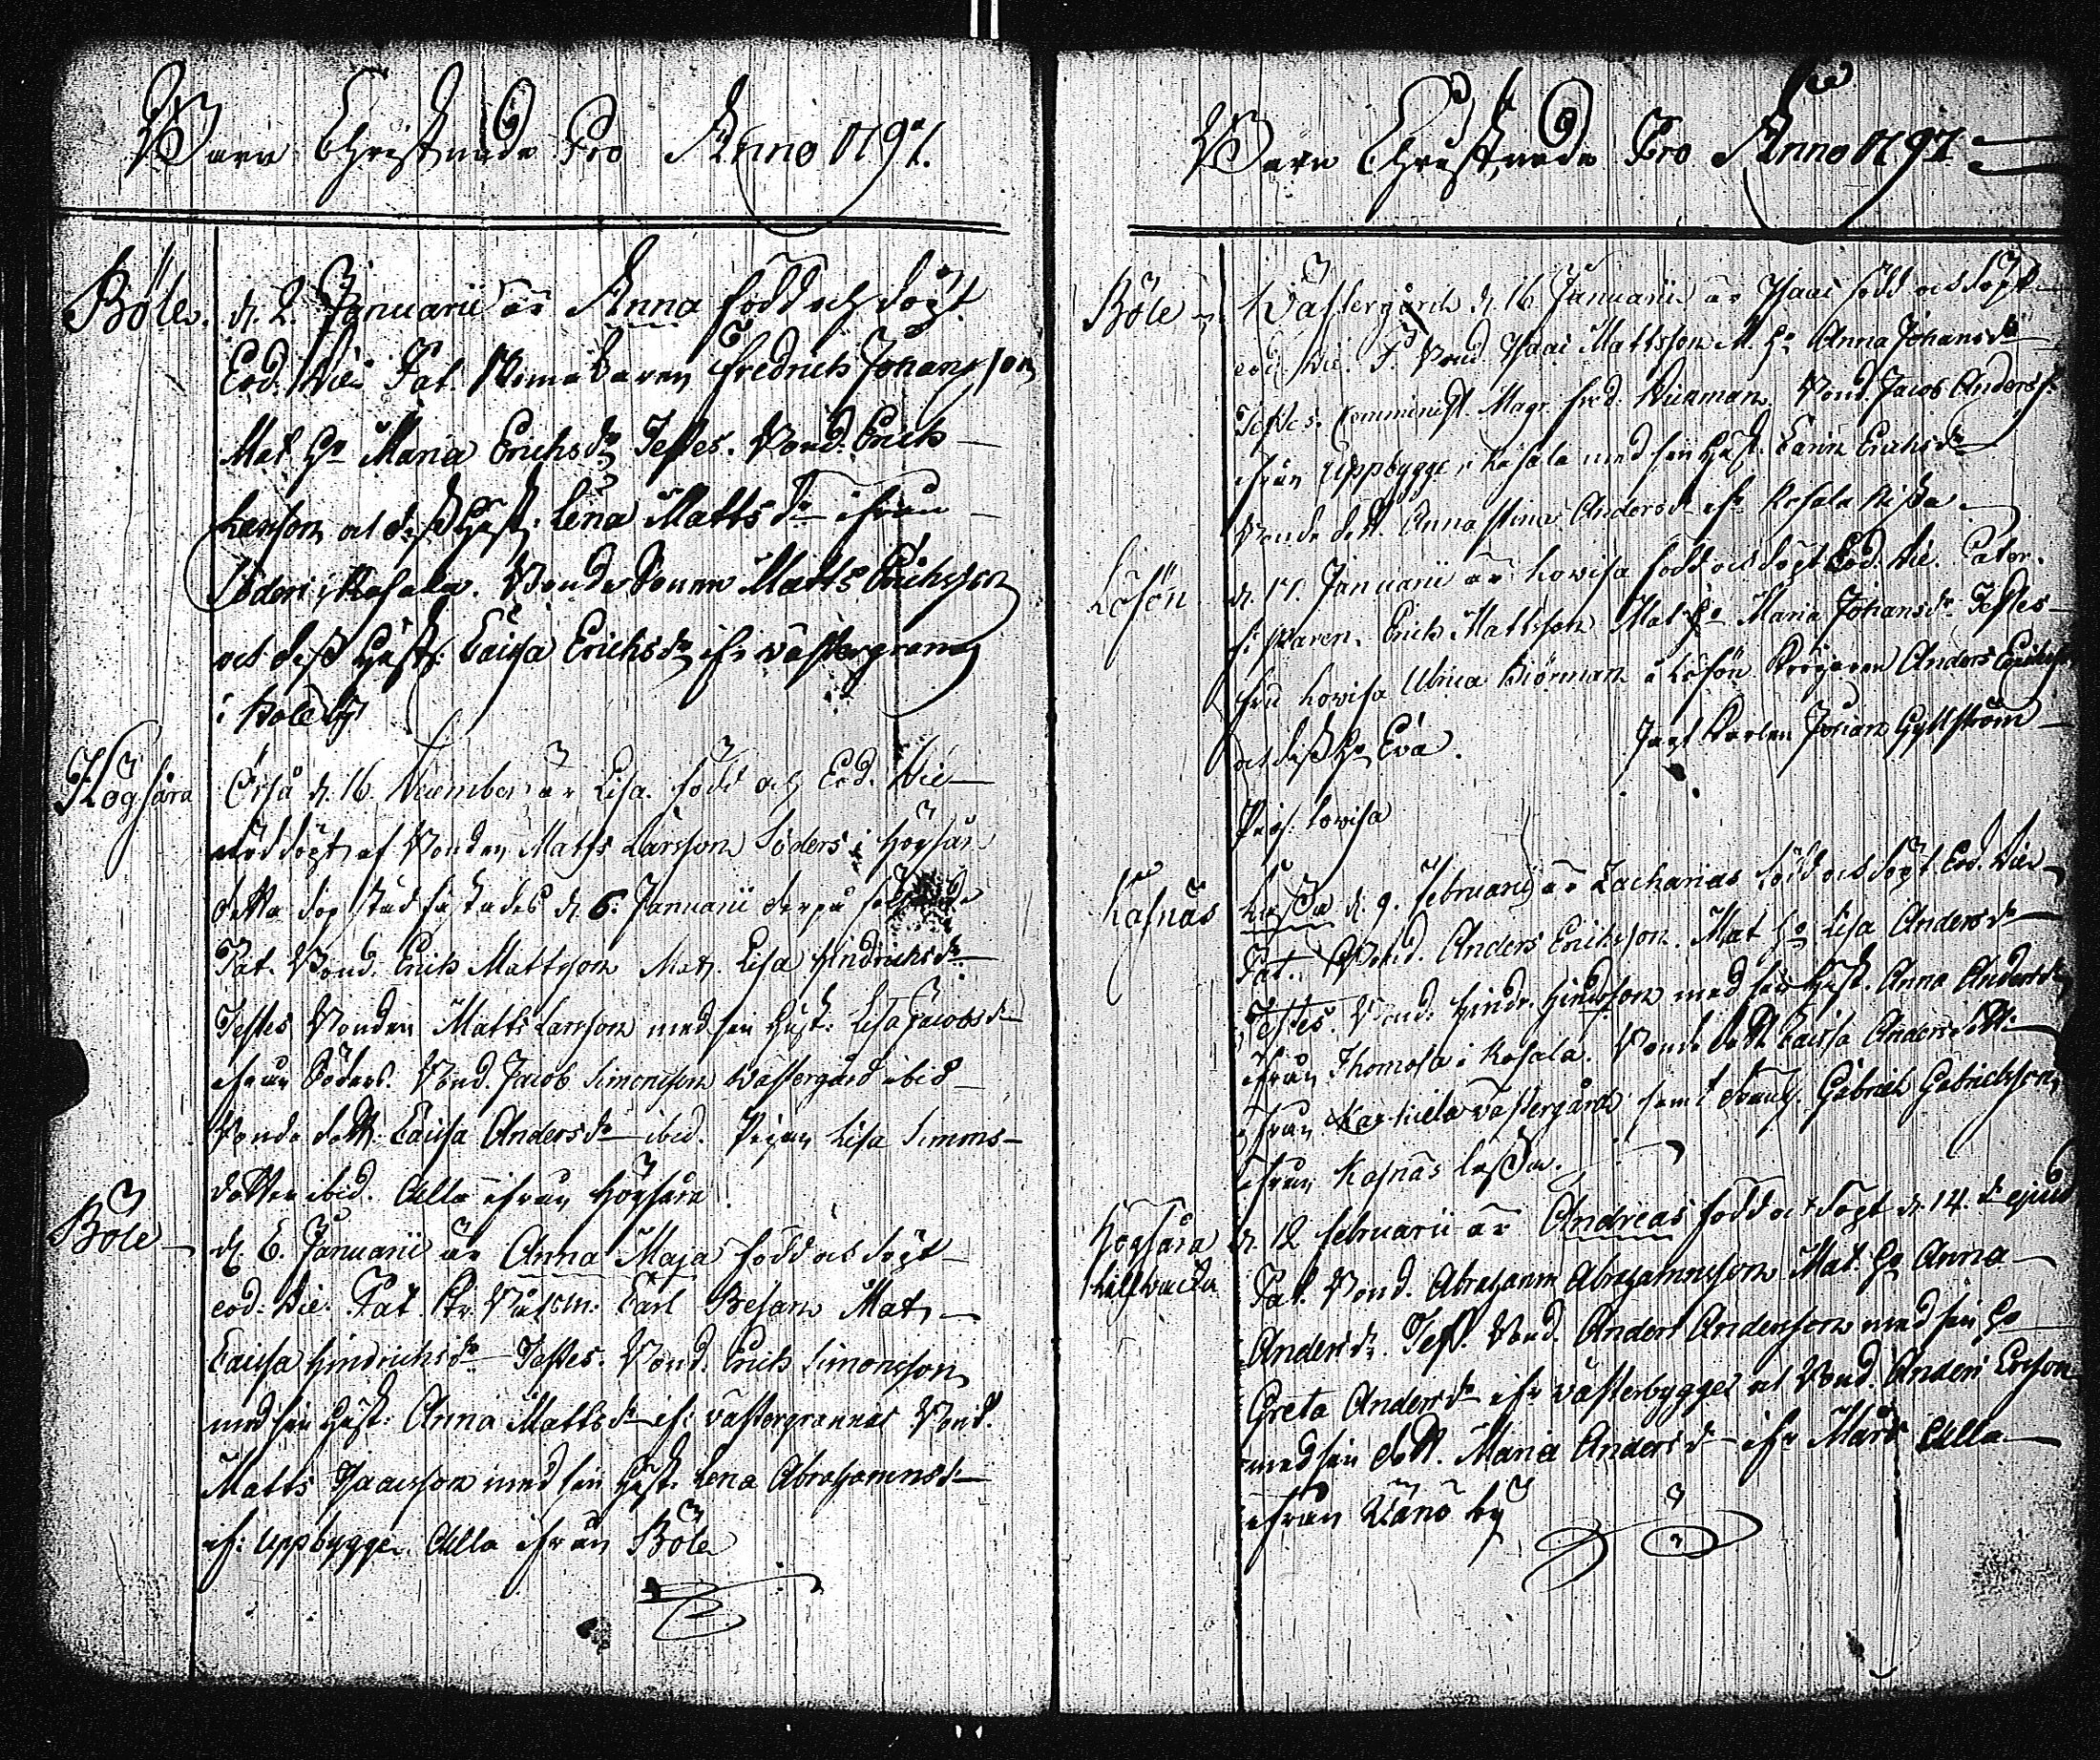 Barn Christnade Pro Anno 1797.
Böle. d. 2. Januarii är Anna född och döpt
Eod. Die Pat. Fredrich Johansson
Mat. H:o Maria Erichsd:r Testes. Bond. Erich
Larsson och dess Hust: Lena Matts d:r ifrån
Söders i Rosala. Bonde Sonen Matts Erichsson
och dess Hust: Caisa Erichsd:r ifr. västergranne
i Böle by
Högsåra d. 16. December är Lisa född och Eod. Die
nöddöpt af Bonden Matts Larsson Söders i Högsår
detta dop stadfästades d. 6. Januarii derpå
Pat. Bond. Erich Mattsson Mat. Lisa Hindrichsd:r
Testes Bonden Matts Larsson med sin Hust: Lisa Jacobsd:r
ifrån Söders. Bond. Jacob Simonsson Västergård ibid
Bonde dott: Caisa Andersd:r ibid. Pigan Lisa Simons-
dotter ibid. Alla ifrån Högsåra
Böle d. 6. Januarii är Anna Maja född och döpt
eod. Die. Pat. Carl Mat.
Caisa Hindrichsd:r Testes. Bond. Erich Simonsson
med sin Hust: Anna Mattsd:r if: västergrannas Bond.
Matts Isaacsson med sin Hust: Lena Abrahamsd:r
if: uppbygge. Alla ifrån Böle
Barn Christnade Pro Anno 1797
Böle Västergård d. 16. Januarii är Isaac född och döpt
eod. Die. P. Bond. Isaac Mattsson M. H:o Anna Johansd:r
Testes. Comminist. Magr. Fred. Bond. Jacob Anderss:
ifrån Uppbygge i Rosala med sin Hust. Carin Erichsd:r
Bonde dott. Anna Stina Andersd:r ifr Rosala
Löfön d. 17. Januarii är Lovisa född och döpt Eod. Die. Pater.
Erich Mattsson Mat H:o Maria Johansd:r Testes
Fru Lovisa Ulrica Biörman å Löfön Anders
och dess H:o Eva. Johan Gyllström
Pig. Lovisa
Kasnäs d. 9. Februarii är Zacharias född och döpt Eod. Die
Pat. Bond. Anders Erichsson. Mat H:o Lisa Andersd:r
Testes. Bond. Hindr. Hindersson med sin Hust. Anna Andersd:r
ifrån Thomosa i Rosala. Bonde dott Caisa Andersdott:
ifrån västergård samt Gabriel Gabrielsson
ifrån Kasnäs
Högsåra d. 12 Februarii är Andreas född och döpt d. 14. d:o ejusd
Pat. Bond. Abraham Abrahamsson Mat. H:o Anna
Andersd:r. Test. Bond. Anders Andersson med sin H:o
Greta Andersd:r ifr västerbygges och Bond. Anders Ersson
med sin dott. Maria Andersd:r ifr Mårs Alla
ifrån Vänö by